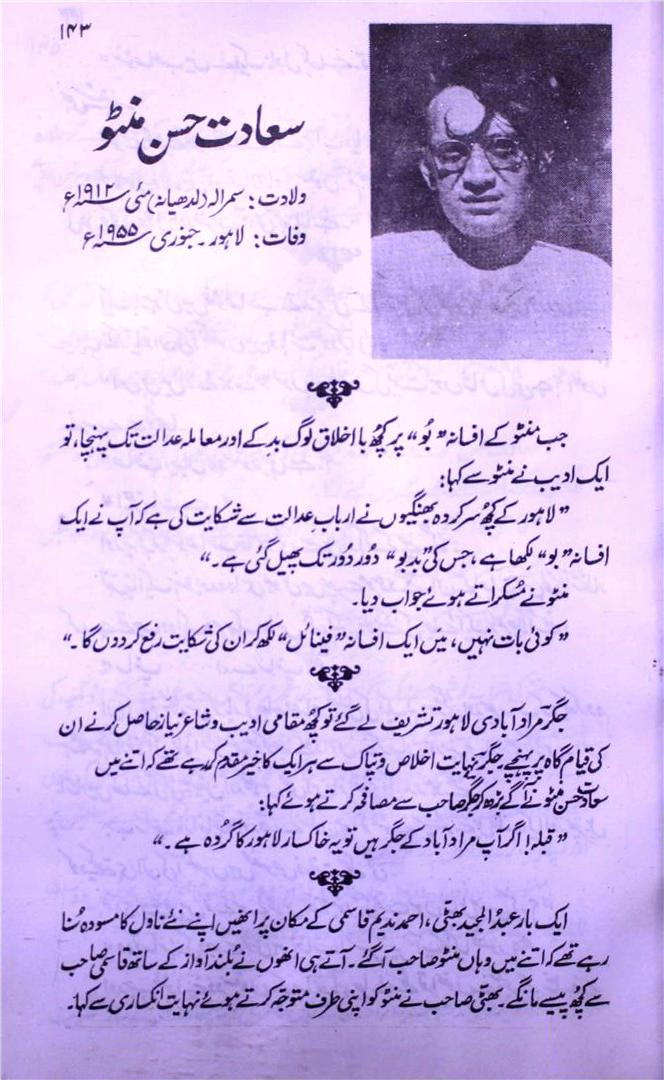 ۱۴۳
سعادت حسن منٹو
ولادت: سمرالہ (لدھیانہ) مئی ۱۹۱۲ء
وفات: لاہور۔ جنوری ۱۹۵۵ء
جب منٹو کے افسانہ ”بُو“ پر کچھ با اخلاق لوگ بدکے اور معاملہ عدالت تک پہنچا، تو
ایک ادیب نے منٹو سے کہا:
”لاہور کے کچھ سرکردہ بھنگیوں نے ارباب عدالت سے شکایت کی ہے کہ آپ نے ایک
افسانہ ”بو“ لکھا ہے، جس کی ”بدبو“ دُور دُور تک پھیل گئی ہے۔“
منٹو نے مُسکراتے ہوئے جواب دیا۔
”کوئی بات نہیں، میں ایک افسانہ ”فینائل“ لکھ کر ان کی شکایت رفع کر دوں گا۔“
جگر مراد آبادی لاہور تشریف لے گئے تو کچھ مقامی ادیب و شاعر نیاز حاصل کرنے ان
کی قیام گاہ پر پہنچے جگر نہایت اخلاص و تپاک سے ہر ایک کا خیر مقدم کر رہے تھے کہ اتنے میں
سعادت حسن منٹو نے آگے بڑھ کر جگر صاحب سے مصافحہ کرتے ہوئے کہا:
”قبلہ! اگر آپ مراد آباد کے جگر ہیں تو یہ خاکسار لاہور کا گُردہ ہے۔“
ایک بار عبدُ المجید بھٹی، احمد ندیم قاسمی کے مکان پر انھیں اپنے نئے ناول کا مسودہ سُنا
رہے تھے کہ اتنے میں وہاں منٹو صاحب آ گئے۔ آتے ہی انھوں نے بُلند آواز کے ساتھ قاسمی صاحب
سے کچھ پیسے مانگے۔ بھٹی صاحب نے منٹو کو اپنی طرف متوجہ کرتے ہوئے نہایت انکساری سے کہا۔